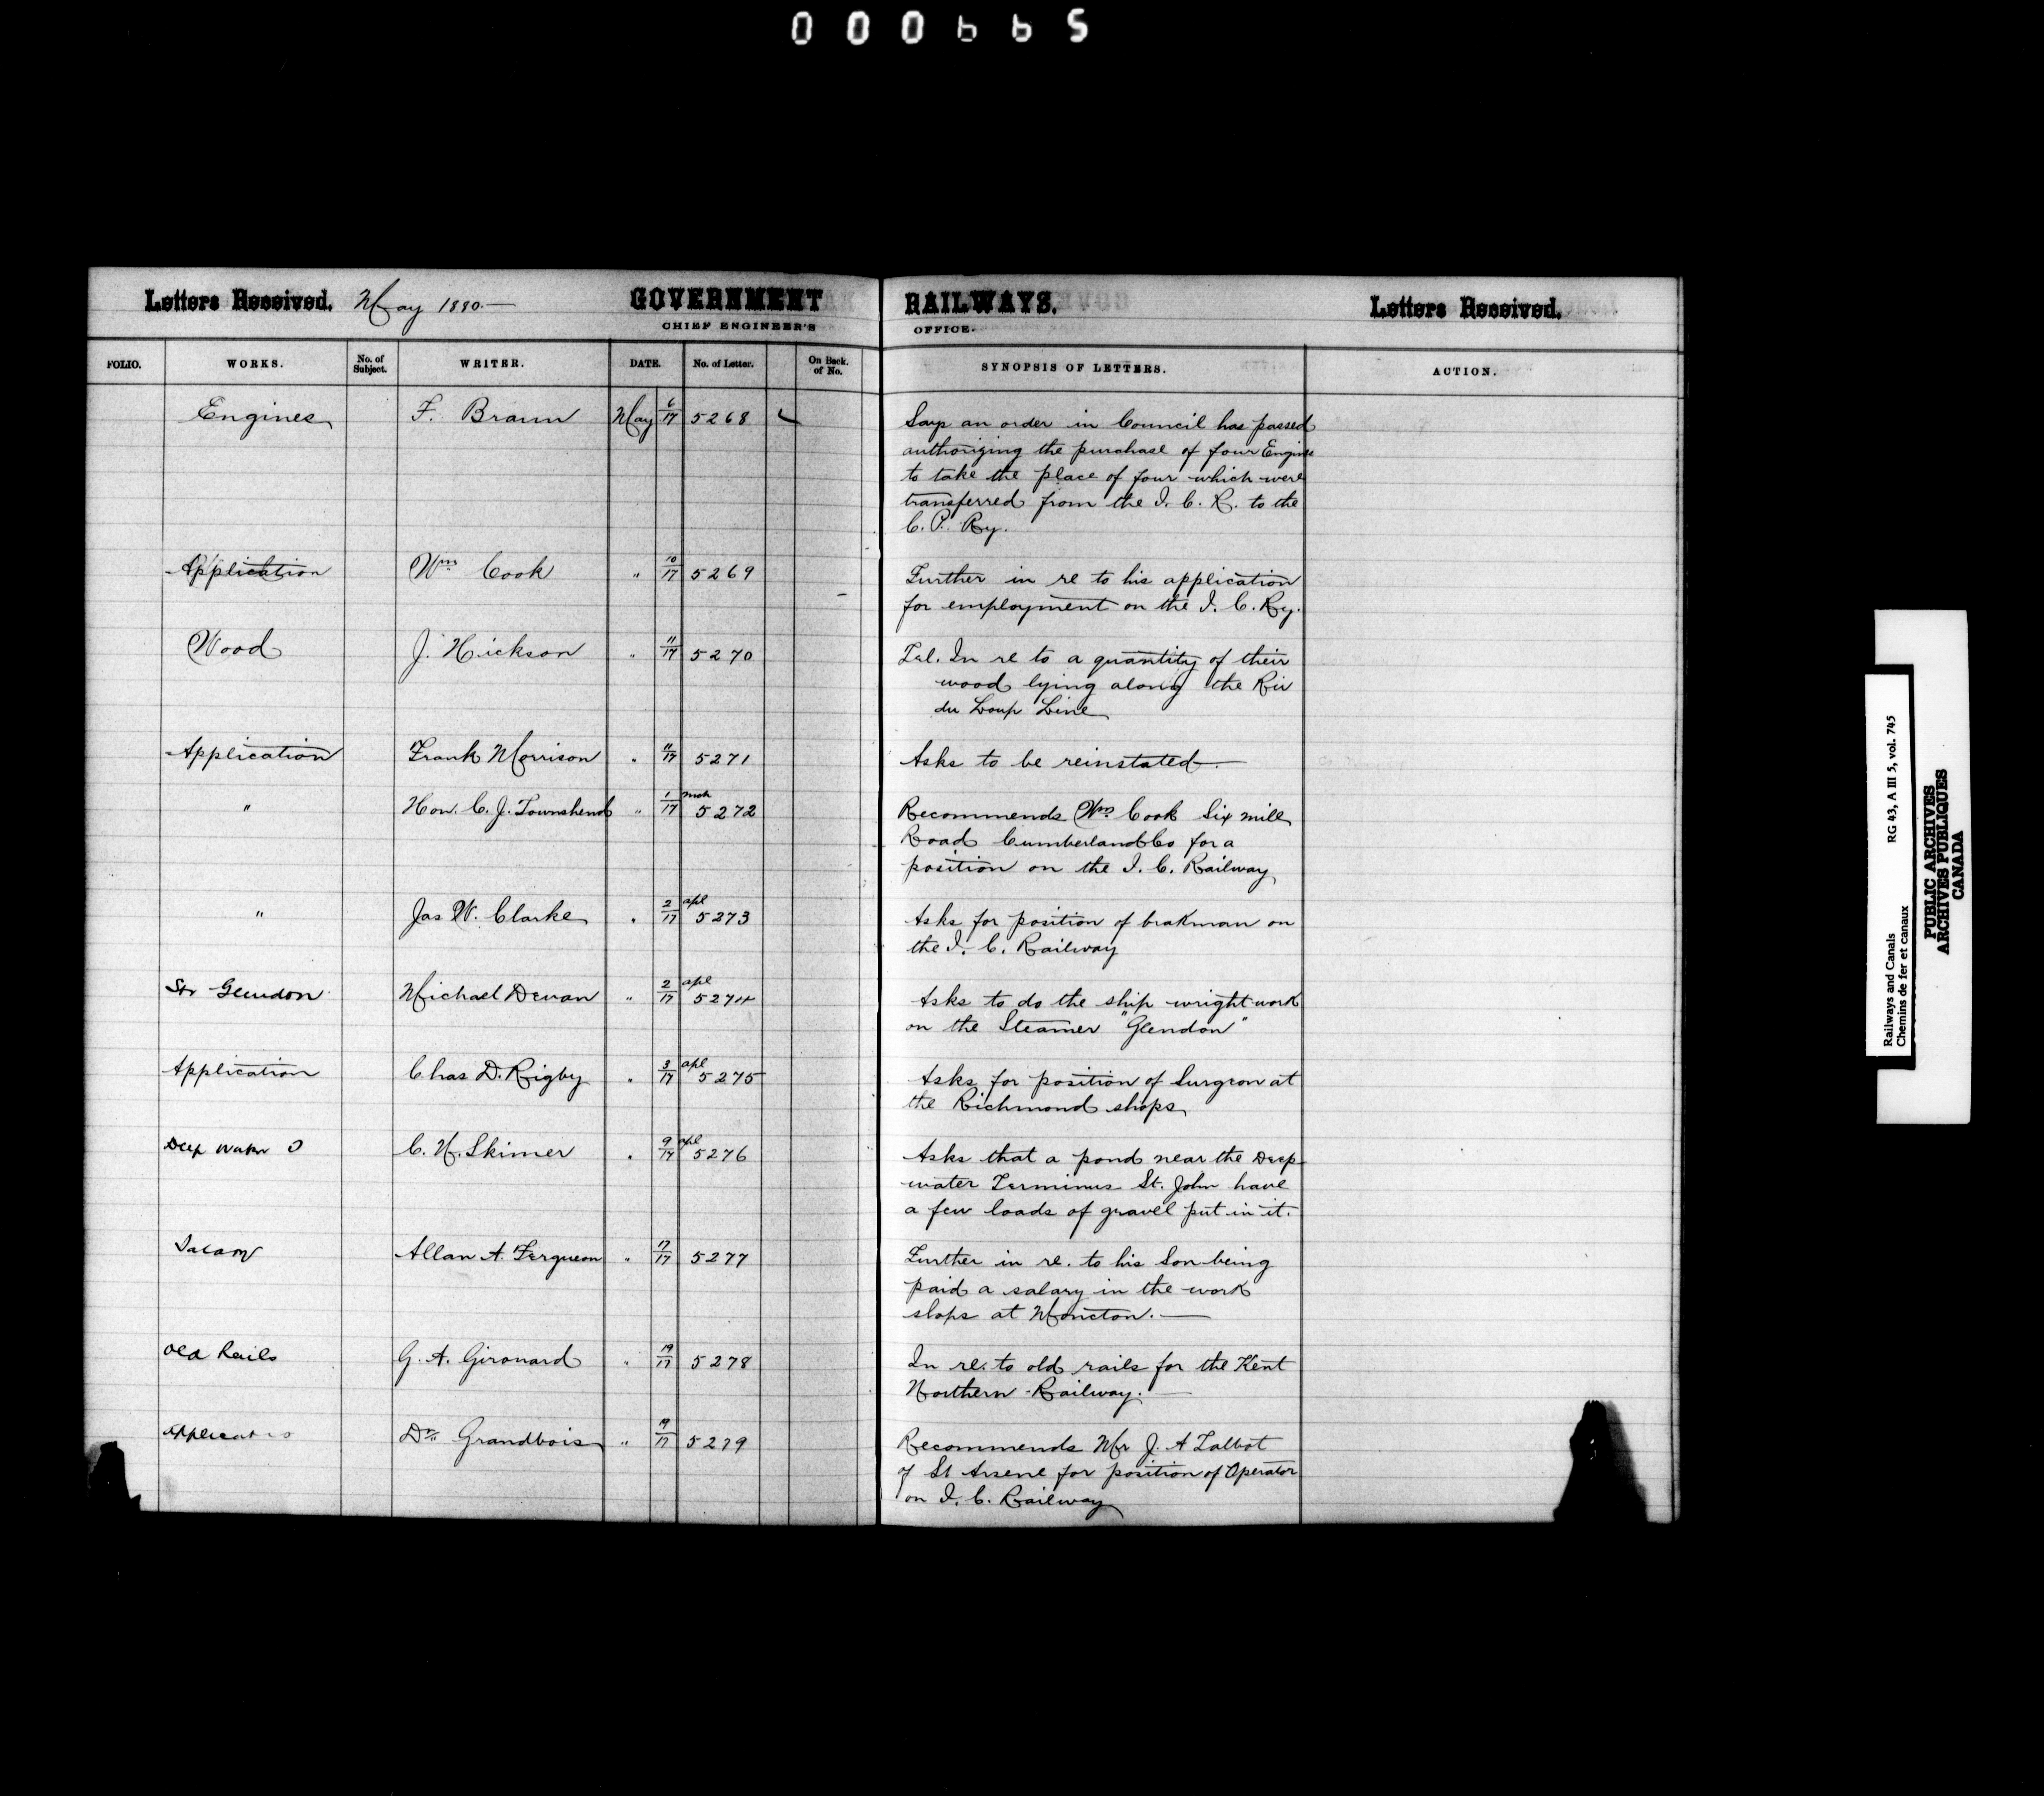 000665
Letters Received. May 1880.— GOVERNMENT RAILWAYS. Letters Received.
CHIEF ENGINEER'S OFFICE.
FOLIO. WORKS. No. of Subject. WRITER. DATE. No. of Letter. On Back. of No. SYNOPSIS OF LETTERS. ACTION.
Engines F. Braun May 6/17 5268 Says an order in Council has passed
authorizing the purchase of four Engines
to take the place of four which were
transferred from the I. C. R. to the
C. P. Ry.
Application Wm Cook " 10/17 5269 Further in re to his application
for employment on the I. C. Ry.
Wood J. Hickson " 11/17 5270 Tel. In re to a quantity of their
wood lying along the Riv
du Loup Line
Application Frank Morrison " 11/17 5271 Asks to be reinstated—
" Hon. C. J. Townshend " 1/17 mch 5272 Recommends Wm Cook Six mile
Road Cumberland Co for a
position on the I. C. Railway
" Jas W. Clarke " 2/17 apl 5273 Asks for position of brakman on
the I. C. Railway
Str Glendon Michael Devan " 2/17 apl 5274 Asks to do the ship wright work
on the Steamer "Glendon"
Application Chas D. Rigby " 3/17 apl 5275 Asks for position of Surgeon at
the Richmond shops
Deep Water C. N. Skinner " 9/17 apl 5276 Asks that a pond near the Deep
water Terminus St. John have
a few loads of gravel put in it.
Salary Allan A. Ferguson " 17/17 5277 Further in re. to his Son being
paid a salary in the work
shops at Moncton.—
Old Rails G. A. Girouard " 19/17 5278 In re. to old rails for the Kent
Northern Railway.—
Application Dr. Grandbois " 19/17 5279 Recommends Mr J. A Talbot
of St Arsene for position of Operator
on I. C. Railway
Railways and Canals RG 43, A III 5, vol. 745
Chemins de fer et canaux
PUBLIC ARCHIVES
ARCHIVES PUBLIQUES
CANADA